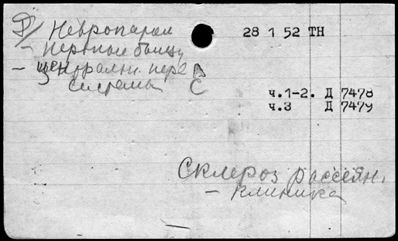 Невропатол
28 1 52 ТН
– Нервные болез
– центральн. нерв
системы С
ч.1-2. Д 7478
ч.3 Д 7479
Склероз рассеян.
– клиника